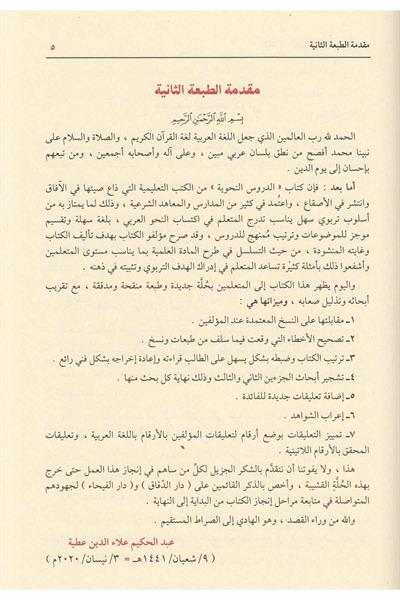 مقدمة الطبعة الثانية ٥
مقدمة الطبعة الثانية
بِسْمِ اللَّهِ الرَّحْمَٰنِ الرَّحِيمِ
الحمد لله رب العالمين الذي جعل اللغة العربية لغة القرآن الكريم ، والصلاة والسلام على
نبينا محمد أفصح من نطق بلسان عربي مبين ، وعلى آله وأصحابه أجمعين ، ومن تبعهم
بإحسان إلى يوم الدين .
أما بعد : فإن كتاب « الدروس النحوية » من الكتب التعليمية التي ذاع صيتها في الآفاق
وانتشر في الأصقاع ، واعتُمد في كثير من المدارس والمعاهد الشرعية ، وذلك لما يمتاز به من
أسلوب تربوي سهل يناسب تدرج المتعلم في اكتساب النحو العربي ، بلغة سهلة وتقسيم
موجز للموضوعات وترتيب مُمنهج للدروس ، وقد صرح مؤلفو الكتاب بهدف تأليف الكتاب
وغايته المنشودة ، من حيث التسلسل في طرح المادة العلمية بما يناسب مستوى المتعلمين
وأشفعوا ذلك بأمثلة كثيرة تساعد المتعلم في إدراك الهدف التربوي وتثبيته في ذهنه .
واليوم يظهر هذا الكتاب إلى المتعلمين بحُلَّة جديدة وطبعة منقحة ومدققة ، مع تقريب
أبحاثه وتذليل صعابه ، وميزاتها هي :
١ـ مقابلتها على النسخ المعتمدة عند المؤلفين .
٢ـ تصحيح الأخطاء التي وقعت فيما سلف من طبعات ونسخ .
٣ـ ترتيب الكتاب وضبطه بشكل يسهل على الطالب قراءته وإعادة إخراجه بشكل فني رائع .
٤ـ تشجير أبحاث الجزءين الثاني والثالث وذلك نهاية كل بحث منها .
٥ـ إضافة تعليقات جديدة للفائدة .
٦ـ إعراب الشواهد .
٧ـ تمييز التعليقات بوضع أرقام لتعليقات المؤلفين بالأرقام باللغة العربية ، وتعليقات
المحقق بالأرقام اللاتينية .
هذا ، ولا يفوتنا أن نتقدَّم بالشكر الجزيل لكلِّ من ساهم في إنجاز هذا العمل حتى خرج
بهذه الحُلَّةِ القشيبة ، وأخص بالذكر القائمين على ( دار الدَّقاق ) و( دار الفيحاء ) لجهودهم
المتواصلة في متابعة مراحل إنجاز الكتاب من البداية إلى النهاية .
والله من وراء القصد ، وهو الهادي إلى الصراط المستقيم .
عبد الحكيم علاء الدين عطية
( ٩/ شعبان/ ١٤٤١هـ = ٣/ نيسان/ ٢٠٢٠م )